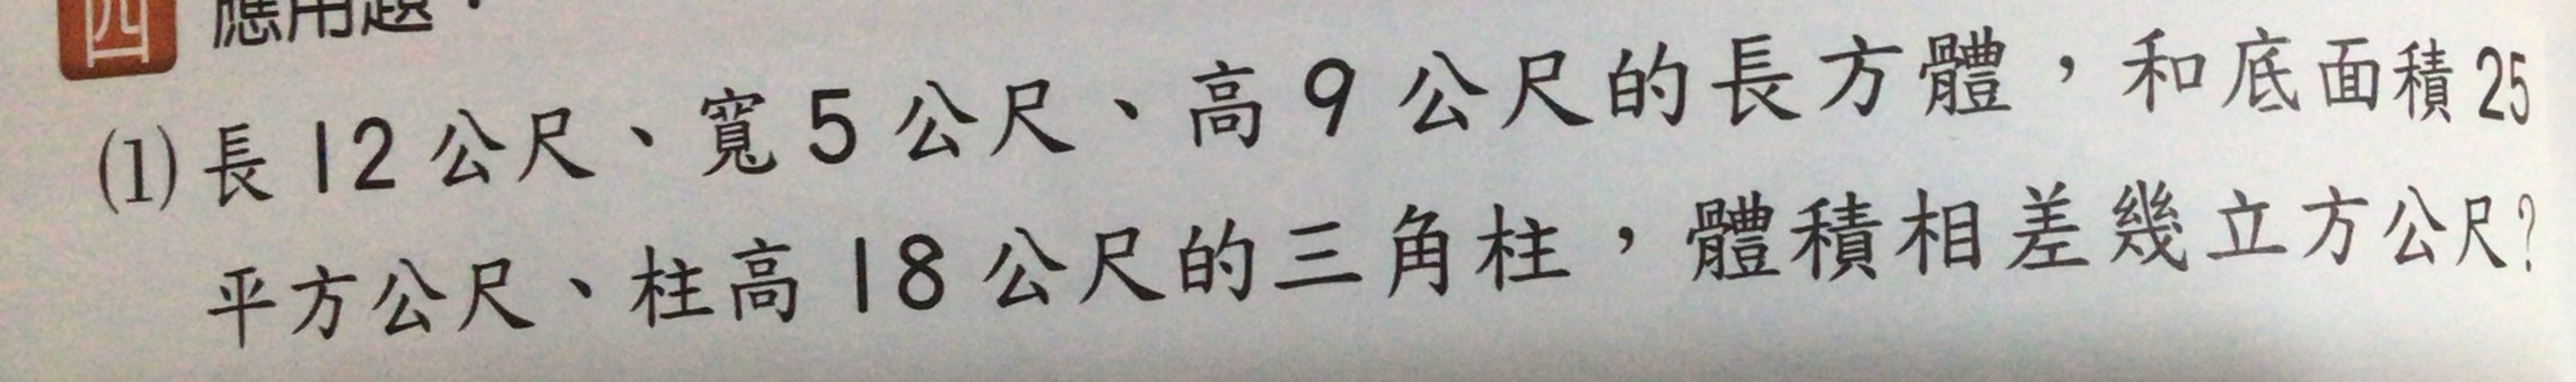 四 應用題：
(1) 長12公尺、寬5公尺、高9公尺的長方體，和底面積25
平方公尺、柱高18公尺的三角柱，體積相差幾立方公尺？